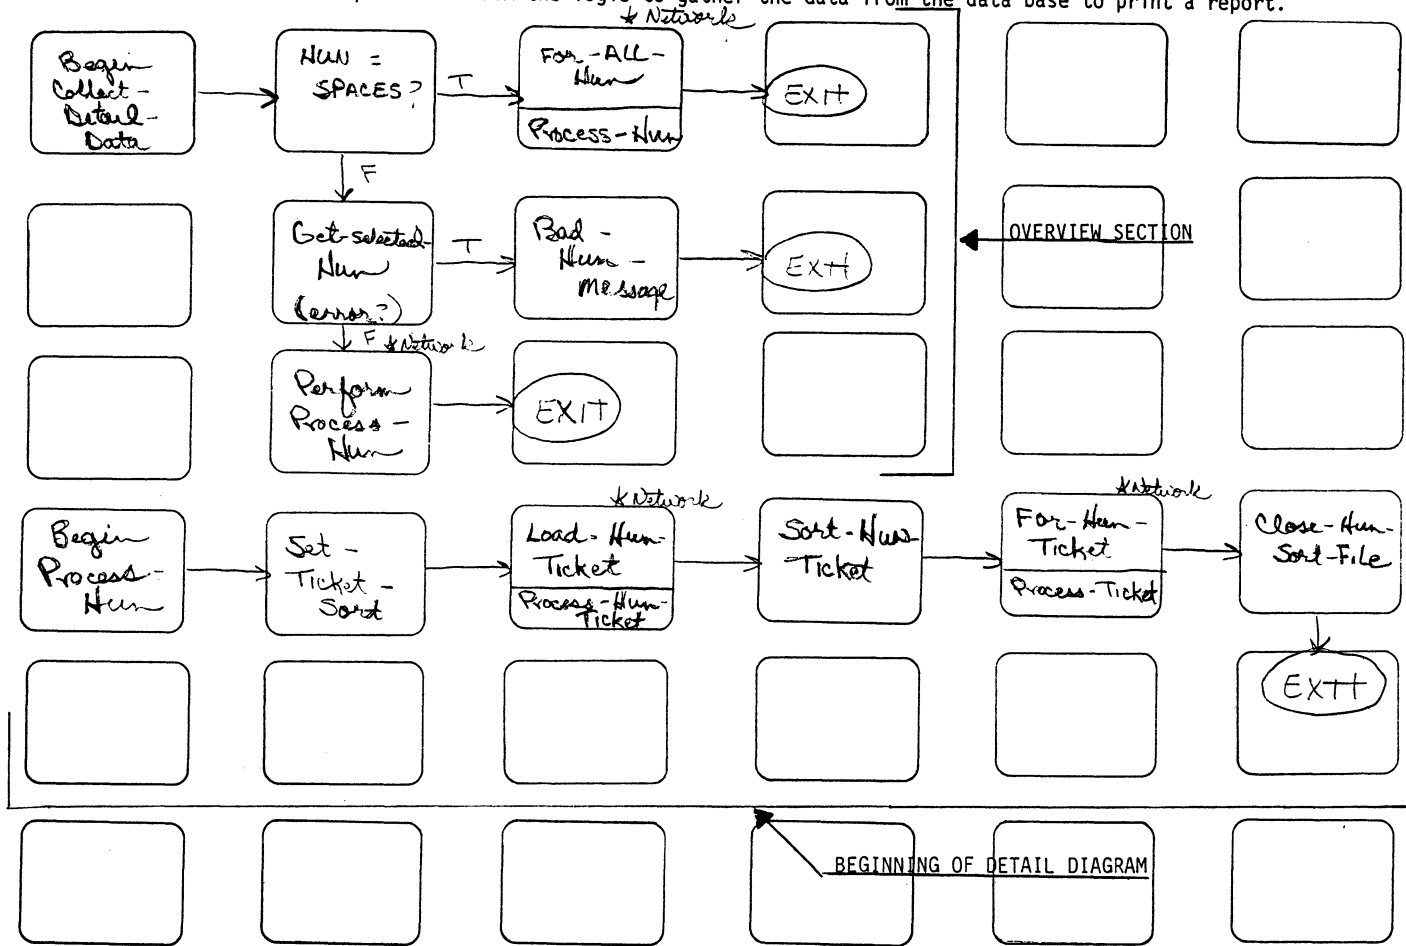 the logic to gather the data from the data base to print a report.
* Network
Begin
Collect-
Detail-
Data
HUN =
SPACES?
T
For-ALL-
Hun
Process-Hun
EXIT
F
Get-selected-
Hun
(error?)
T
Bad-
Hun-
Message
EXIT
OVERVIEW SECTION
F
* Network
Perform
Process-
Hun
EXIT
* Network
* Network
Begin
Process-
Hun
Set-
Ticket-
Sort
Load-Hun-
Ticket
Process-Hun-
Ticket
Sort-Hun-
Ticket
For-Hun-
Ticket
Process-Ticket
Close-Hun-
Sort-File
EXIT
BEGINNING OF DETAIL DIAGRAM